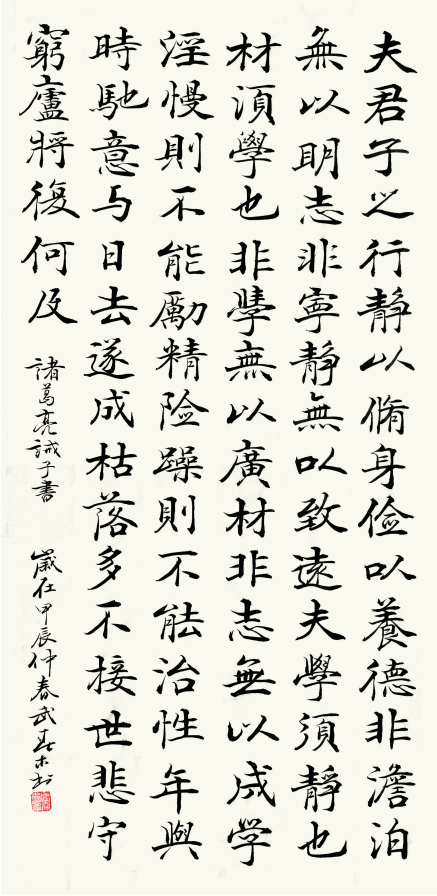 夫君子之行靜以脩身俭以養德非澹泊
無以明志非寧靜無以致遠夫學須靜也
材須學也非學無以廣材非志無以成學
淫慢則不能勵精险躁則不能治性年與
時馳意与日去遂成枯落多不接世悲守
窮廬將復何及
諸葛亮誡子書
歲在甲辰仲春武